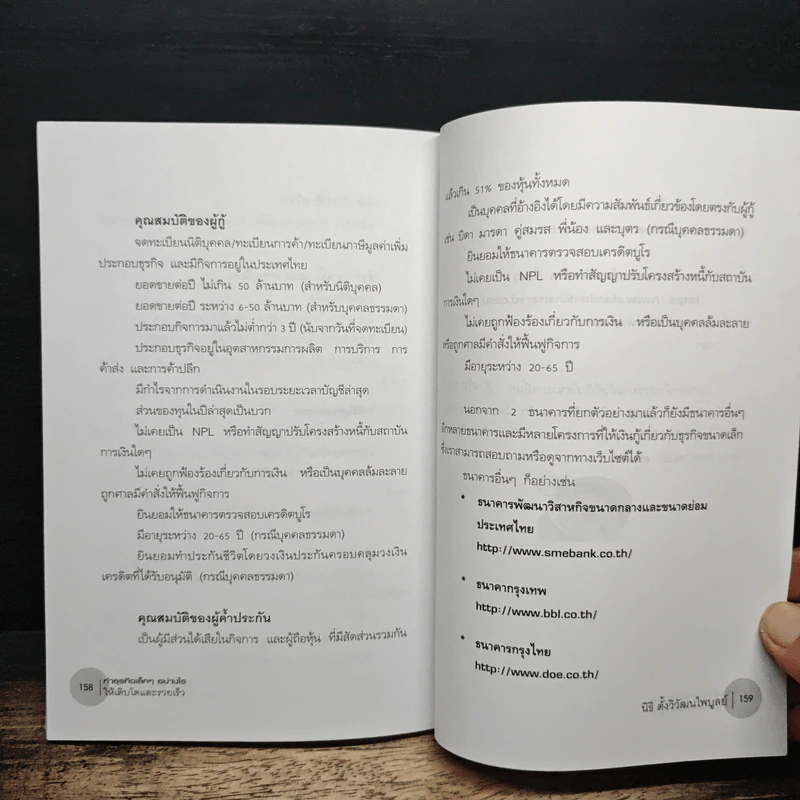 คุณสมบัติของผู้กู้
จดทะเบียนนิติบุคคล/ทะเบียนการค้า/ทะเบียนภาษีมูลค่าเพิ่ม
ประกอบธุรกิจ และมีกิจการอยู่ในประเทศไทย
ยอดขายต่อปี ไม่เกิน 50 ล้านบาท (สำหรับนิติบุคคล)
ยอดขายต่อปี ระหว่าง 6-50 ล้านบาท (สำหรับบุคคลธรรมดา)
ประกอบกิจการมาแล้วไม่ต่ำกว่า 3 ปี (นับจากวันที่จดทะเบียน)
ประกอบธุรกิจอยู่ในอุตสาหกรรมการผลิต การบริการ การ
ค้าส่ง และการค้าปลีก
มีกำไรจากการดำเนินงานในรอบระยะเวลาบัญชีล่าสุด
ส่วนของทุนในปีล่าสุดเป็นบวก
ไม่เคยเป็น NPL หรือทำสัญญาปรับโครงสร้างหนี้กับสถาบัน
การเงินใดๆ
ไม่เคยถูกฟ้องร้องเกี่ยวกับการเงิน หรือเป็นบุคคลล้มละลาย
ถูกศาลมีคำสั่งให้ฟื้นฟูกิจการ
ยินยอมให้ธนาคารตรวจสอบเครดิตบูโร
มีอายุระหว่าง 20-65 ปี (กรณีบุคคลธรรมดา)
ยินยอมทำประกันชีวิตโดยวงเงินประกันครอบคลุมวงเงิน
เครดิตที่ได้รับอนุมัติ (กรณีบุคคลธรรมดา)
คุณสมบัติของผู้ค้ำประกัน
เป็นผู้มีส่วนได้เสียในกิจการ และผู้ถือหุ้น ที่มีสัดส่วนรวมกัน
158
ทำธุรกิจเล็กๆ อย่างไร
ให้เติบโตและรวยเร็ว
แล้วเกิน 51% ของหุ้นทั้งหมด
เป็นบุคคลที่อ้างอิงได้โดยมีความสัมพันธ์เกี่ยวข้องโดยตรงกับผู้กู้
เช่น บิดา มารดา คู่สมรส พี่น้อง และบุตร (กรณีบุคคลธรรมดา)
ยินยอมให้ธนาคารตรวจสอบเครดิตบูโร
ไม่เคยเป็น NPL หรือทำสัญญาปรับโครงสร้างหนี้กับสถาบัน
การเงินใดๆ
ไม่เคยถูกฟ้องร้องเกี่ยวกับการเงิน หรือเป็นบุคคลล้มละลาย
หรือถูกศาลมีคำสั่งให้ฟื้นฟูกิจการ
มีอายุระหว่าง 20-65 ปี
นอกจาก 2 ธนาคารที่ยกตัวอย่างมาแล้วก็ยังมีธนาคารอื่นๆ
อีกหลายธนาคารและมีหลายโครงการที่ให้เงินกู้เกี่ยวกับธุรกิจขนาดเล็ก
ซึ่งเราสามารถสอบถามหรือดูจากทางเว็บไซต์ได้
ธนาคารอื่นๆ ก็อย่างเช่น
* ธนาคารพัฒนาวิสาหกิจขนาดกลางและขนาดย่อม
ประเทศไทย
http://www.smebank.co.th/
* ธนาคากรุงเทพ
http://www.bbl.co.th/
* ธนาคารกรุงไทย
http://www.doe.co.th/
นิธิ ตั้งวิวัฒนไพบูลย์
159